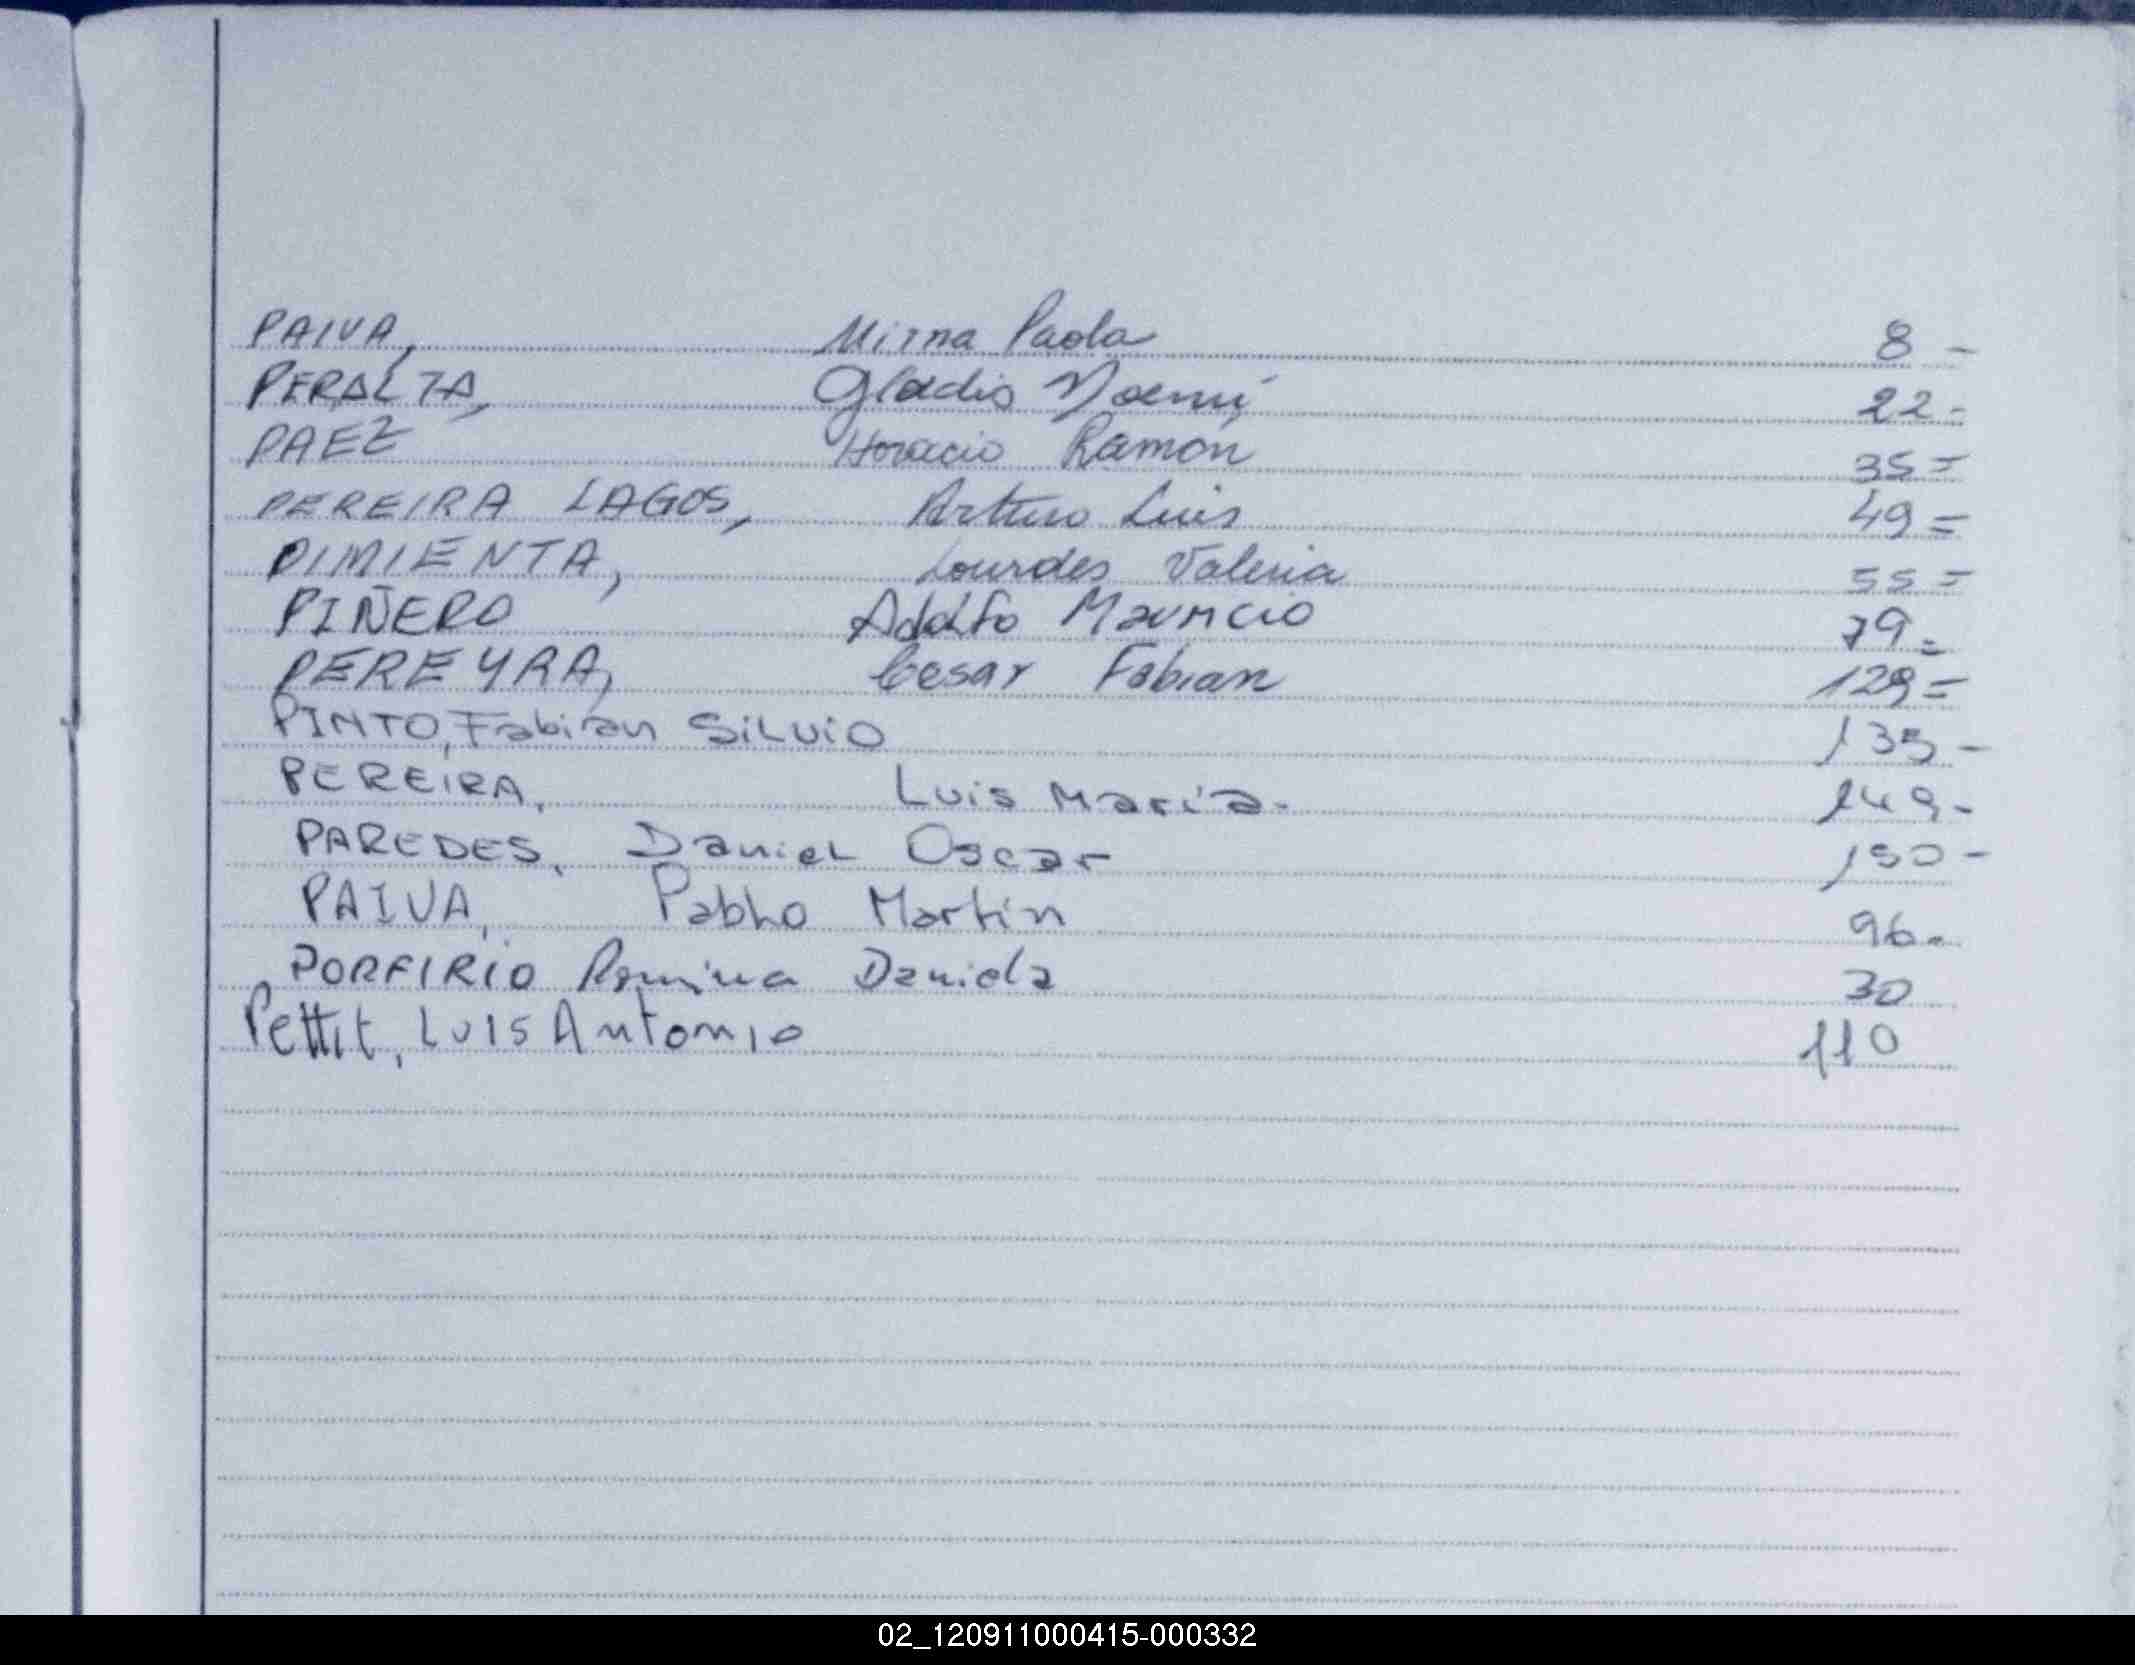 PAIVA, Mirna Paola 8 -
PERALTA, Gladis Noemí 22 -
PAEZ Horacio Ramón 35 =
PEREIRA LAGOS, Arturo Luis 49 =
PIMIENTA, Lourdes Valeria 55 =
PIÑERO Adolfo Mauricio 79 =
PEREYRA, Cesar Fabian 129 =
PINTO, Fabian SiLvio 135 -
PEREIRA, Luis María. 149 -
PAREDES, DanieL Oscar 150 -
PAIVA, Pablo Martín 96 -
PORFIRIO Romina Daniela 30
Pettit, LUIS Antonio 110
02_120911000415-000332